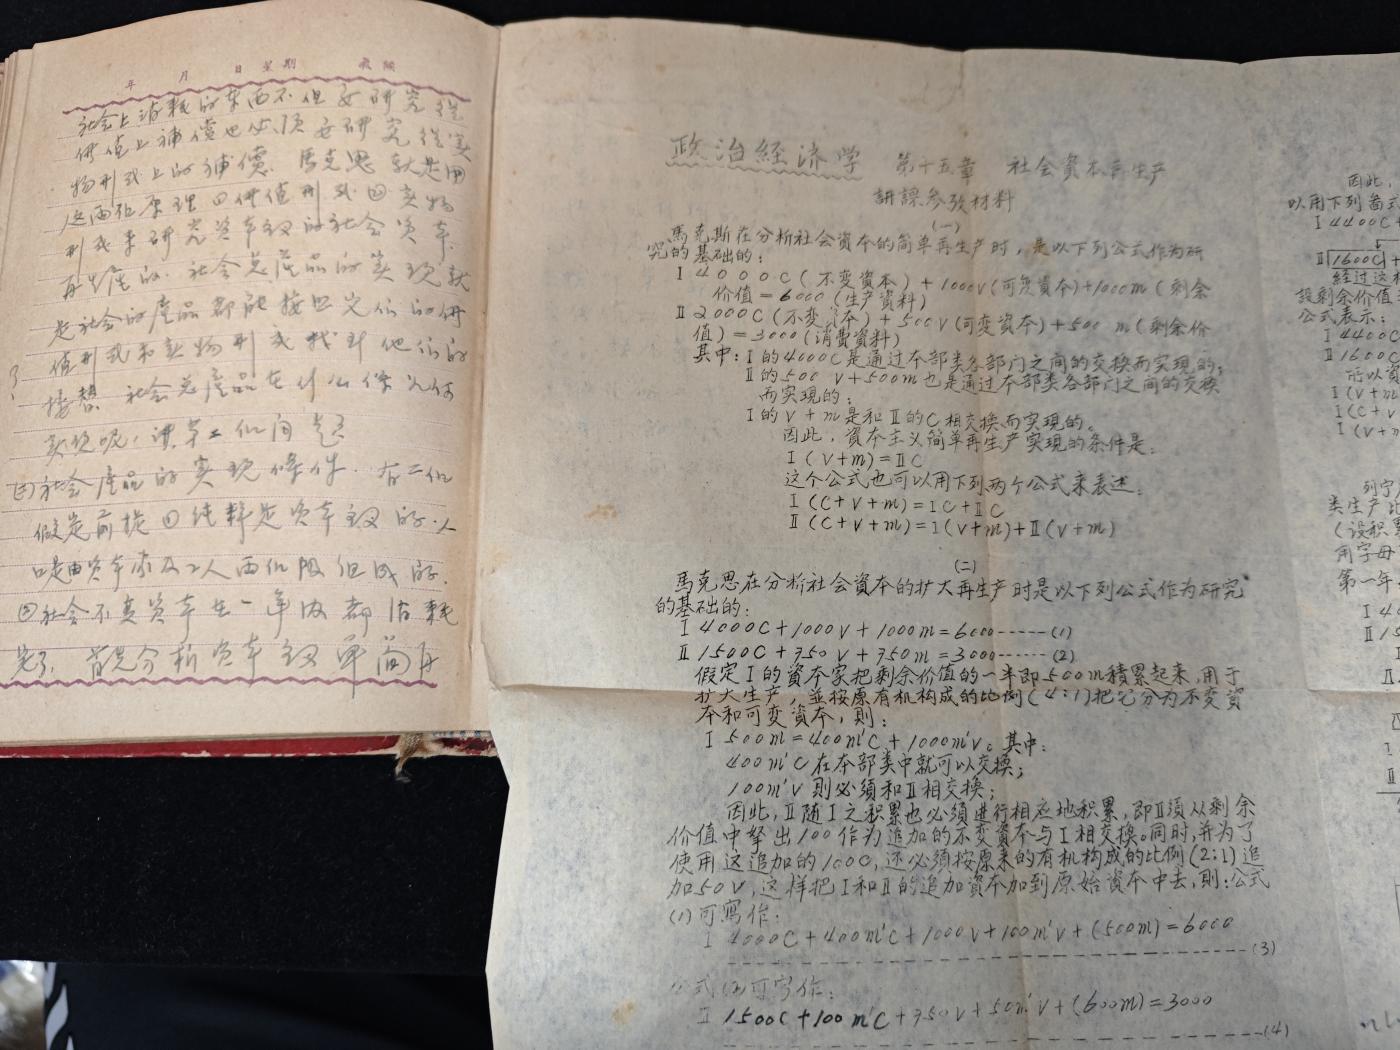 年 月 日 星期 气候
社会上消耗的东西不但要研究從
価值上補償也必須要研究從实
物形式上的補償.馬克思就是用
这两个原理①価值形式②实物
形式来研究资本主义的社会资本
再生產的.社会总產品的实現就
是社会的產品都能按照它们的価
值形式和实物形式找到他们的
接替.社会总產品在什么條件
实现呢,
社会產品的实現條件.有二个
假定前提①纯粹是资本主义的.人
口是由资本家及工人两个阶组成的.
②社会不变资本在一年內都消耗
完了.首先分析资本主义单简再
政治経济学 第十五章 社会資本再生产
講課参攷材料
(一)
馬克斯在分析社会資本的简单再生产时,是以下列公式作为研
究的基础的:
I 4000C(不变資本)+1000V(可变資本)+1000m(剩余
价值=6000(生产資料)
II 2000C(不变资本)+500V(可变資本)+500 m(剩余价
值)=3000(消費資料)
其中:I的4000C是通过本部类各部门之间的交换而实現的;
II的500 V+500m也是通过本部类各部门之间的交换
而实現的;
I的V+m是和II的C相交换而实現的。
因此,資本主义简单再生产实現的条件是:
I(V+m)=IIC
这个公式也可以用下列两个公式来表述:
I(C+V+m)=IC+IIC
II(C+V+m)=I(V+m)+II(V+m)
(二)
馬克思在分析社会資本的扩大再生产时是以下列公式作为研究
的基础的:
I 4000C+1000V+1000m=6000------(1)
II 1500C+750V+750m=3000------(2)
假定I的資本家把剩余价值的一半即500m積累起来,用于
扩大生产,並按原有机构成的比例(4:1)把它分为不变資
本和可变資本,則:
I 500m=400m'C+1000m'V。其中:
400m'C在本部类中就可以交换;
100m'V則必須和II相交换;
因此,II随I之积累也必須进行相应地积累,即II須从剩余
价值中拏出100作为追加的不变資本与I相交换。同时,并为了
使用这追加的100C,还必須按原来的有机构成的比例(2:1)追
加50V,这样把I和II的追加資本加到原始資本中去,則:公式
(1)可寫作:
I 4000C+400m'C+1000V+100m'V+(500m)=6000
------(3)
公式(2)可写作:
II 1500C+100m'C+750V+50m'V+(600m)=3000
------(4)
因此,
以用下列啚式
I 4400C+
II 1600C+
経过这样
設剩余价值
公式表示:
I 4400
II 1600C
所以資
I(V+m
I(C+V
I(V+m
列宁
类生产比
(设积累
用字母
第一年:
I 40
II 15